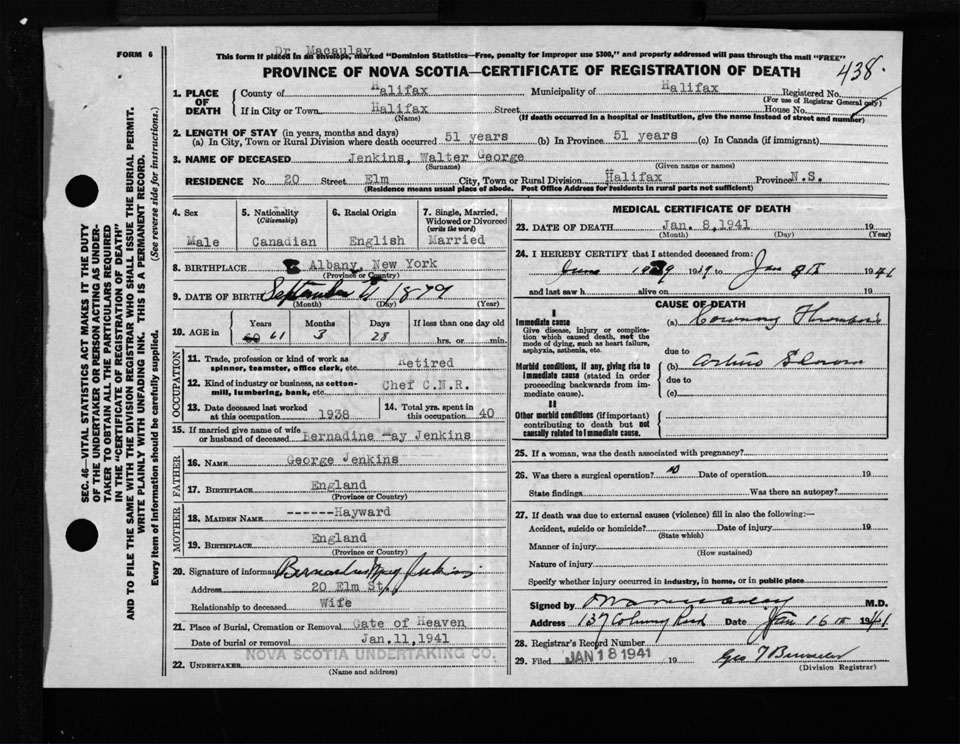 FORM 6
Dr. Macaulay
This form if placed in an envelope, marked "Dominion Statistics—Free, penalty for improper use $300," and properly addressed will pass through the mail "FREE"
PROVINCE OF NOVA SCOTIA—CERTIFICATE OF REGISTRATION OF DEATH
438.
1. PLACE OF DEATH
County of Halifax Municipality of Halifax Registered No.
(For use of Registrar General only)
If in City or Town Halifax Street House No.
(Name) (If death occurred in a hospital or institution, give the name instead of street and number)
2. LENGTH OF STAY (in years, months and days)
(a) In City, Town or Rural Division where death occurred 51 years (b) In Province 51 years (c) In Canada (if immigrant)
3. NAME OF DECEASED Jenkins, Walter George
(Surname) (Given name or names)
RESIDENCE No. 20 Street Elm City, Town or Rural Division Halifax Province N.S.
(Residence means usual place of abode. Post Office Address for residents in rural parts not sufficient)
4. Sex
Male
5. Nationality
(Citizenship)
Canadian
6. Racial Origin
English
7. Single, Married, Widowed or Divorced
(write the word)
Married
8. BIRTHPLACE Albany, New York
(Province or Country)
9. DATE OF BIRTH September 1879
(Month) (Day) (Year)
10. AGE in
Years Months Days If less than one day old
61 3 28 hrs. or min.
OCCUPATION
11. Trade, profession or kind of work as
spinner, teamster, office clerk, etc. Retired
12. Kind of industry or business, as cotten-
mill, lumbering, bank, etc. Chef C.N.R.
13. Date deceased last worked
at this occupation 1938
14. Total yrs. spent in
this occupation 40
15. If married give name of wife
or husband of deceased Bernadine May Jenkins
FATHER
16. NAME George Jenkins
17. BIRTHPLACE England
(Province or Country)
MOTHER
18. MAIDEN NAME ------Hayward
19. BIRTHPLACE England
(Province or Country)
20. Signature of informant May Jenkins
Address 20 Elm St.
Relationship to deceased Wife
21. Place of Burial, Cremation or Removal Gate of Heaven
Date of burial or removal Jan.11,1941
22. UNDERTAKER NOVA SCOTIA UNDERTAKING CO.
(Name and address)
MEDICAL CERTIFICATE OF DEATH
23. DATE OF DEATH Jan. 8,1941 19
(Month) (Day) (Year)
24. I HEREBY CERTIFY that I attended deceased from:
June 1939 to Jan 8th 1941
and last saw h alive on 19
CAUSE OF DEATH
I
Immediate cause
Give disease, injury or complication which caused death, not the mode of dying, such as heart failure, asphyxia, asthenia, etc.
(a) Coronary Thrombosis
due to
Morbid conditions, if any, giving rise to immediate cause (stated in order proceeding backwards from immediate cause).
(b) Arterio
due to
(c)
II
Other morbid conditions (if important) contributing to death but not causally related to immediate cause.
25. If a woman, was the death associated with pregnancy?
26. Was there a surgical operation? no Date of operation 19
State findings Was there an autopsy?
27. If death was due to external causes (violence) fill in also the following:—
Accident, suicide or homicide? Date of injury 19
(State which)
Manner of injury
(How sustained)
Nature of injury
Specify whether injury occurred in industry, in home, or in public place
Signed by M.D.
Address 137 Date Jan 16th 1941
28. Registrar's Record Number
29. Filed JAN 18 1941 19
(Division Registrar)
SEC. 46—VITAL STATISTICS ACT MAKES IT THE DUTY
OF THE UNDERTAKER OR PERSON ACTING AS UNDER-
TAKER TO OBTAIN ALL THE PARTICULARS REQUIRED
IN THE "CERTIFICATE OF REGISTRATION OF DEATH"
AND TO FILE THE SAME WITH THE DIVISION REGISTRAR WHO SHALL ISSUE THE BURIAL PERMIT.
WRITE PLAINLY WITH UNFADING INK. THIS IS A PERMANENT RECORD.
Every item of information should be carefully supplied. (See reverse side for instructions.)